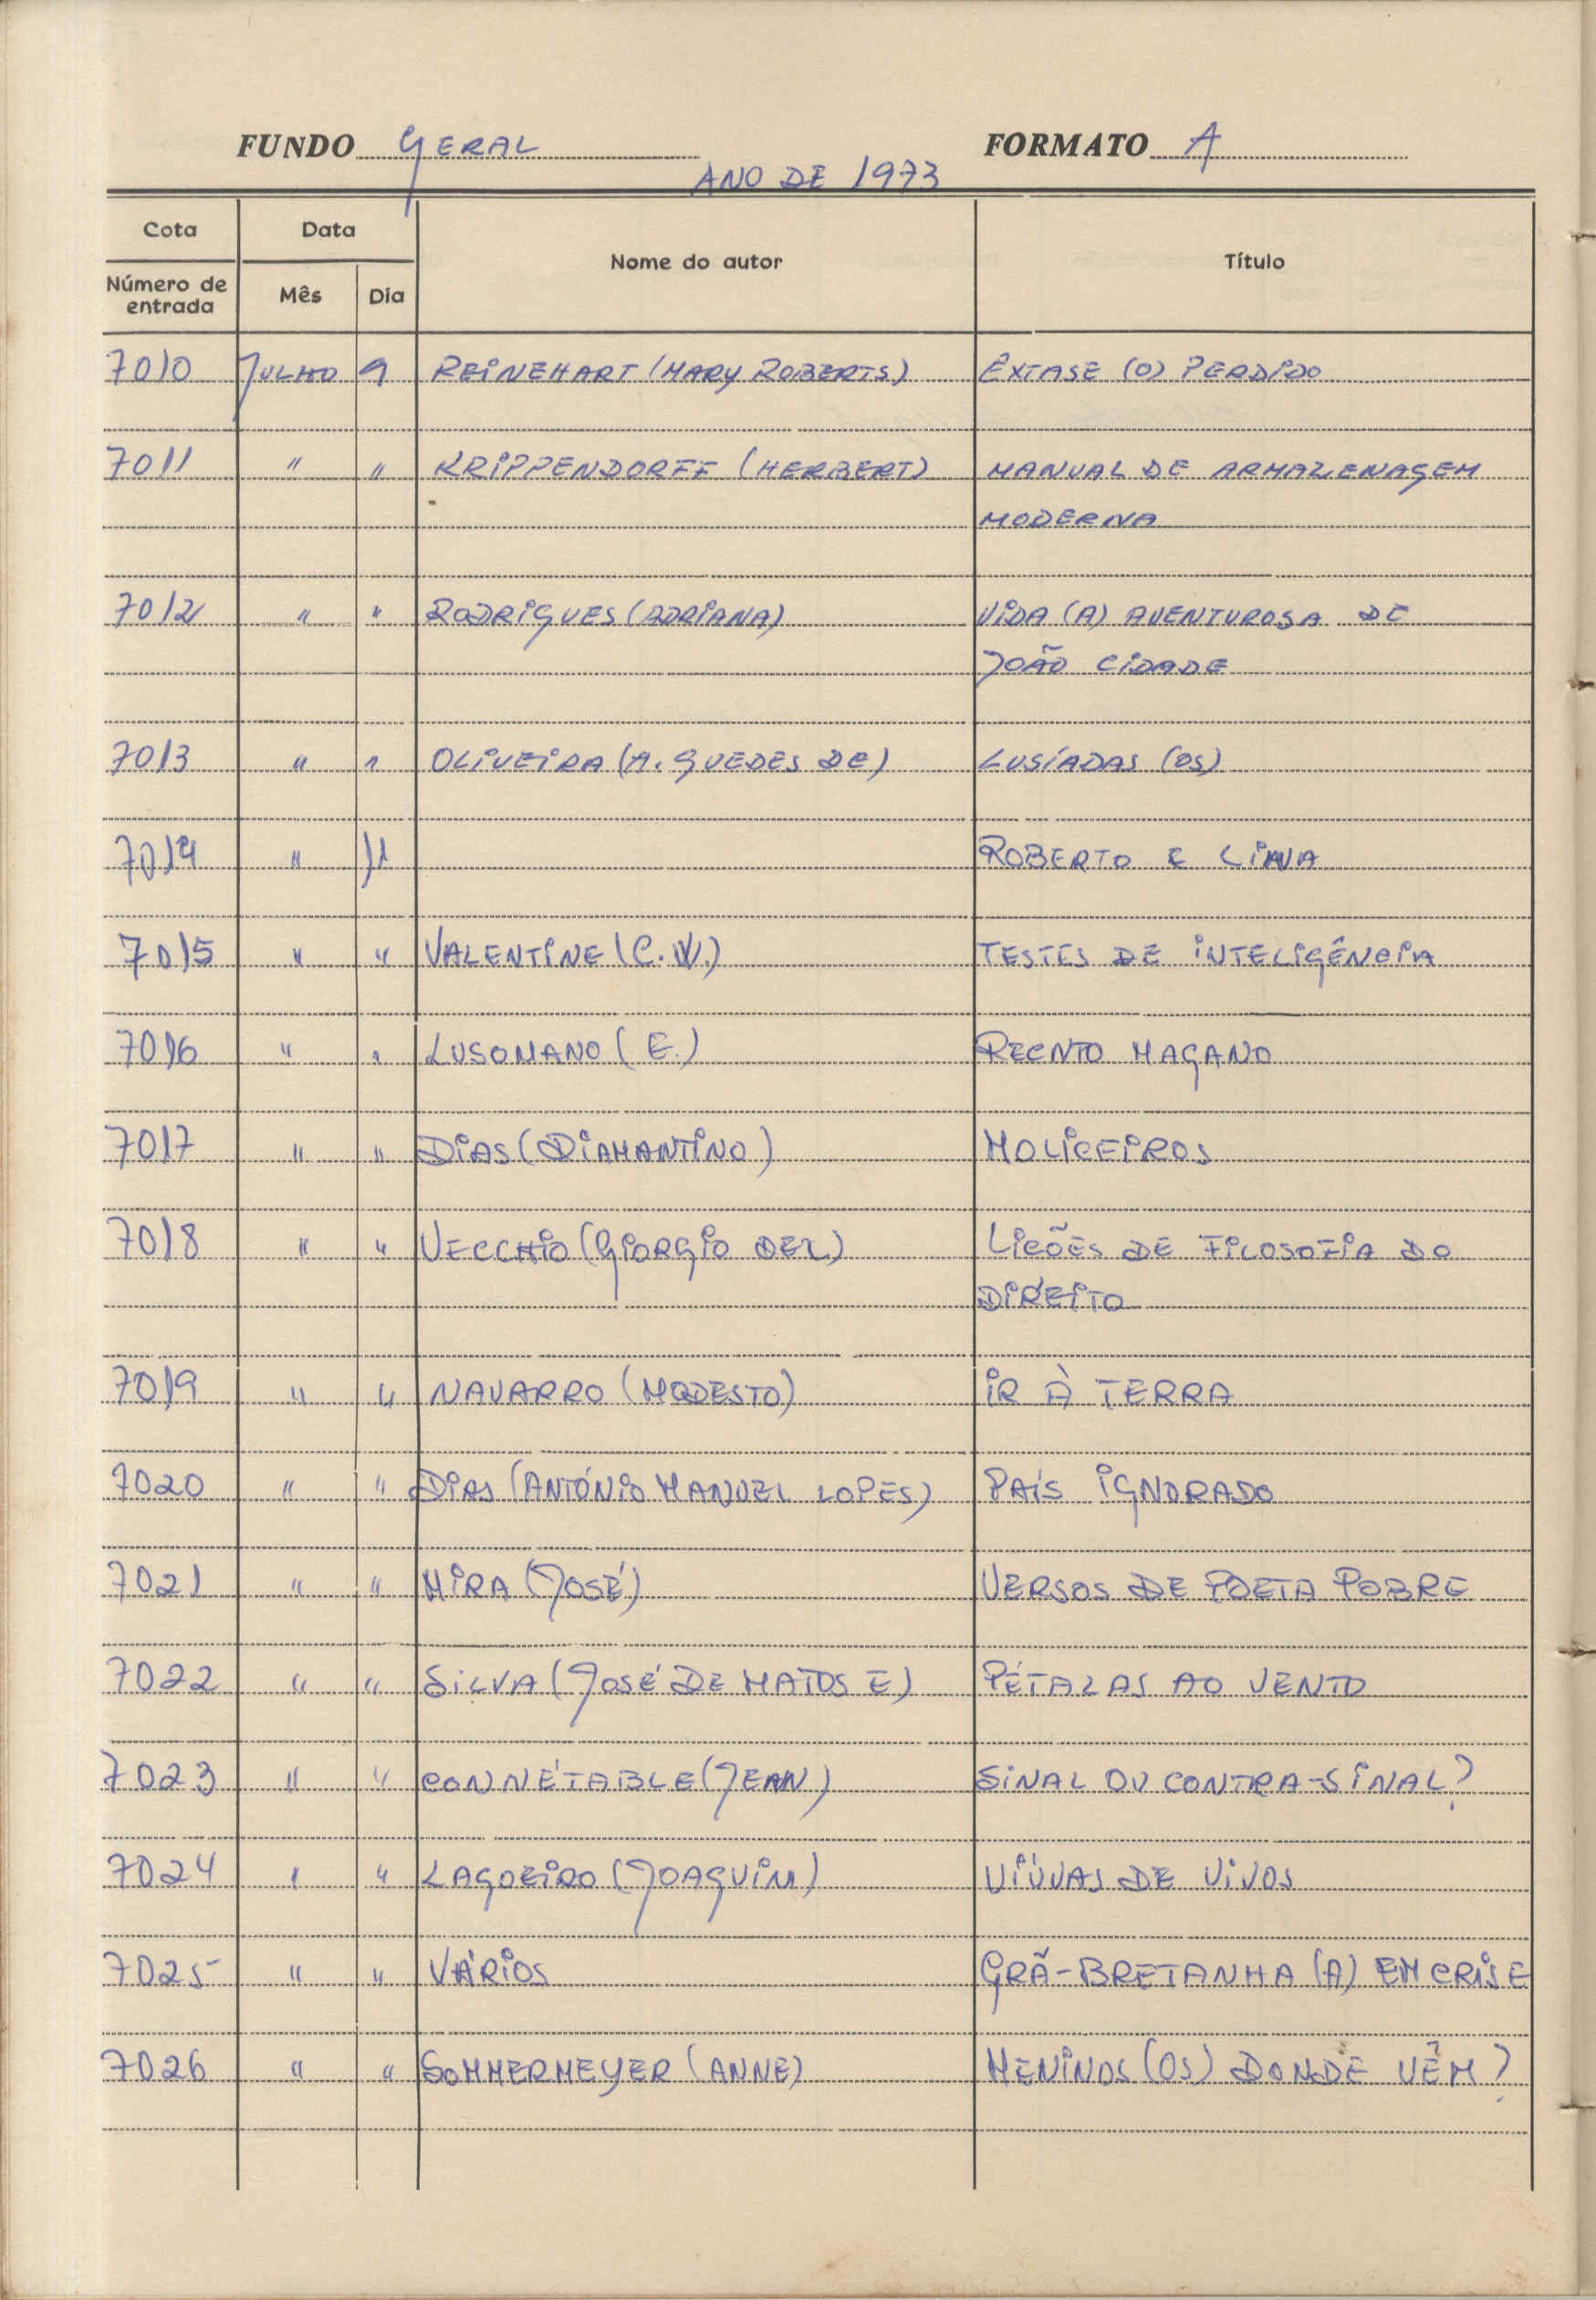 FUNDO GERAL FORMATO A
ANO DE 1973
Cota Data Nome do autor Título
Número de entrada Mês Dia
7010 JULHO 9 REINEHART (MARY ROBERTS) ÊXTASE (O) PERDIDO
7011 " " KRIPPENDORFF (HERBERT) MANUAL DE ARMAZENAGEM
MODERNA
7012 " " RODRIGUES (ADRIANA) VIDA (A) AVENTUROSA DE
JOÃO CIDADE
7013 " " OLIVEIRA (A. GUEDES DE) LUSÍADAS (OS)
7014 " 11 ROBERTO E
7015 " " VALENTINE (C. W.) TESTES DE INTELIGÊNCIA
7016 " " LUSOMANO (E.) RECNTO MAGANO
7017 " " DIAS (DIAMANTINO) MOLICEIROS
7018 " " VECCHIO (GIORGIO DEL) LICÕES DE FILOSOFIA DO
DIREITO
7019 " " NAVARRO (MODESTO) IR À TERRA
7020 " " DIAS (ANTÓNIO MANUEL LOPES) PAÍS IGNORADO
7021 " " MIRA (JOSÉ) VERSOS DE POETA POBRE
7022 " " SILVA (JOSÉ DE MATOS E) PÉTALAS AO VENTO
7023 " " CONNÉTABLE (JEAN) SINAL OU CONTRA-SINAL?
7024 " " LAGOEIRO (JOAQUIM) VIÚVAS DE VIVOS
7025 " " VÁRIOS GRÃ-BRETANHA (A) EM CRISE
7026 " " SOMMERMEYER (ANNE) MENINOS (OS) DONDE VÊM?